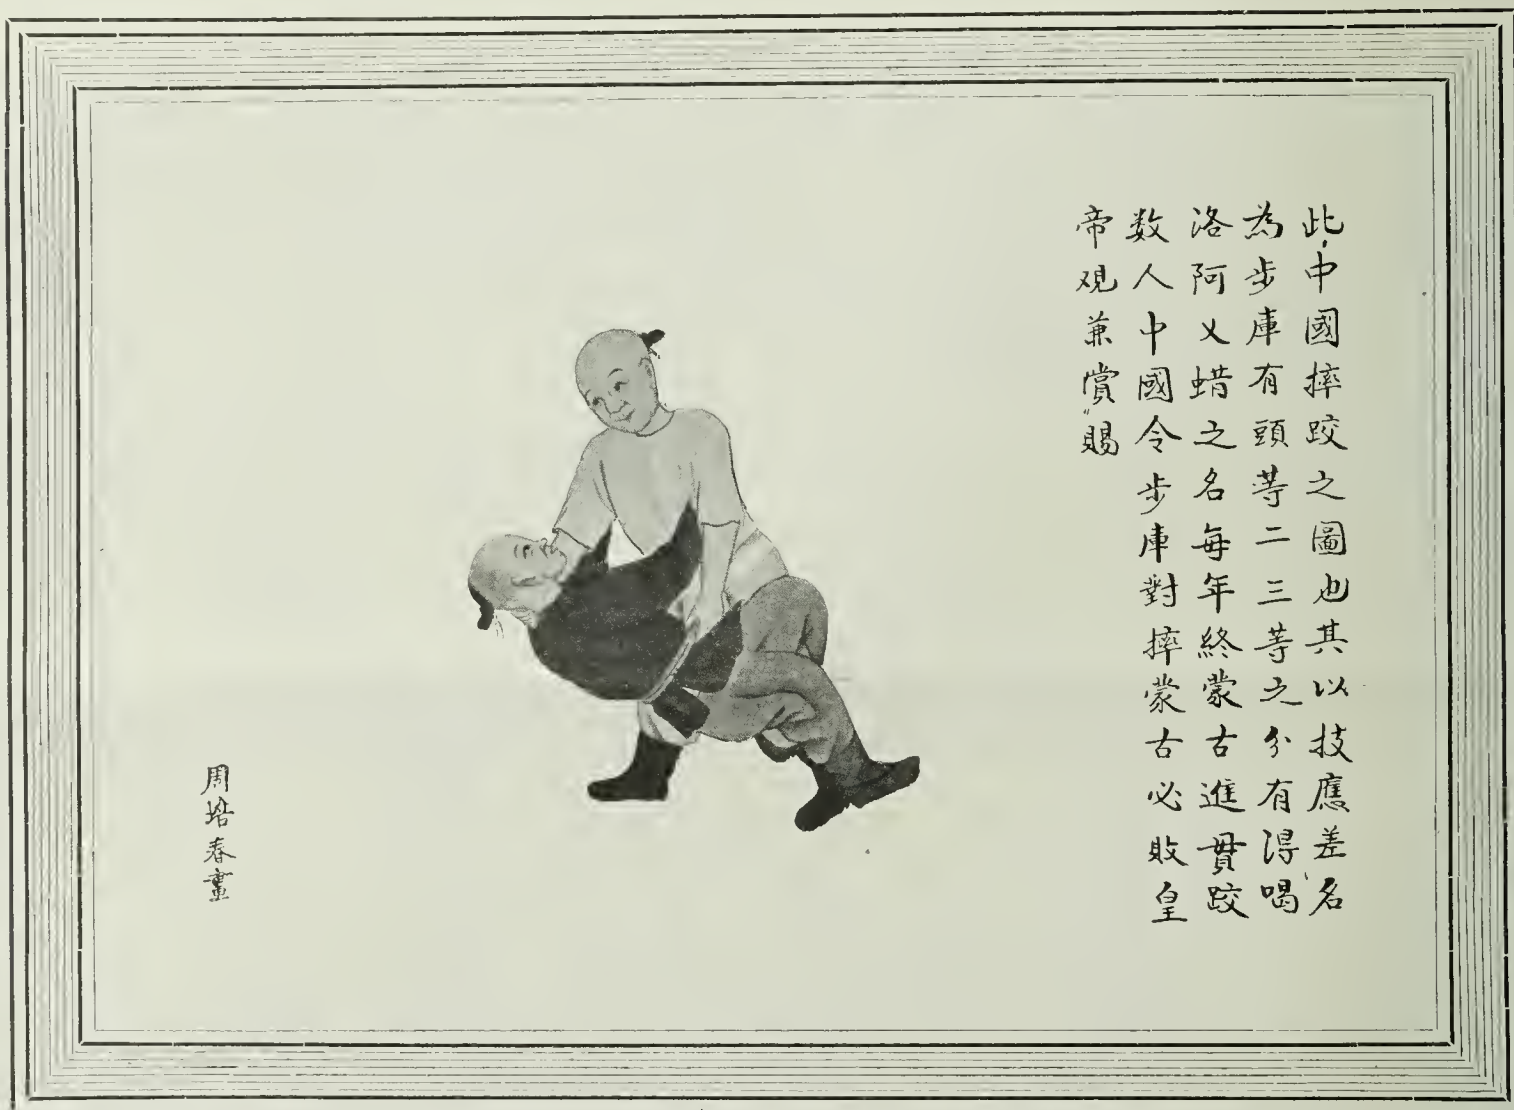 此中國摔跤之圖也其以技應差名
為步庫有頭等二三等之分有得喝
洛阿乂蜡之名每年終蒙古進貫跤
数人中國令步庫對摔蒙古必敗皇
帝观兼賞賜
周培春畫